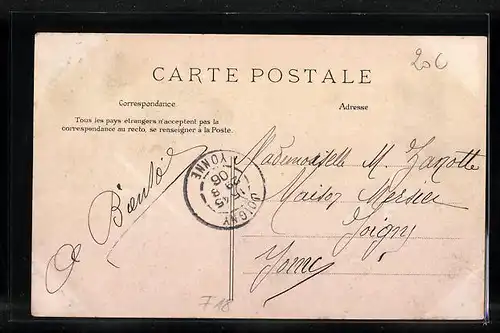 20C
CARTE POSTALE
Correspondance
Adresse
Tous les pays étrangers n'acceptent pas la
correspondance au recto, se renseigner à la Poste.
A Bientôt
JOIGNY
15 45
29 8
06
YONNE
Mademoiselle M. Zanotte
Maison Mersier
Joigny
Yonne